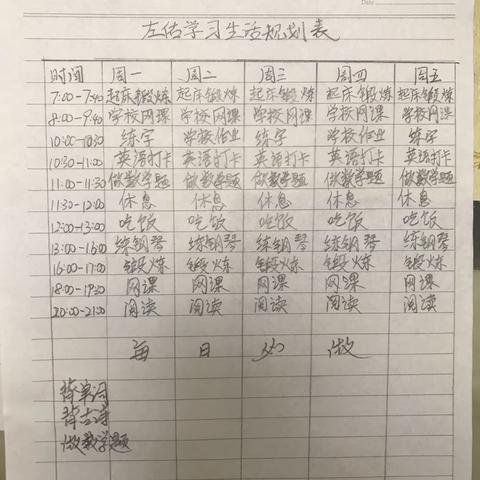 左佑学习生活规划表
时间 周一 周二 周三 周四 周五
7:00-7:40 起床锻炼 起床锻炼 起床锻炼 起床锻炼 起床锻炼
8:00-9:40 学校网课 学校网课 学校网课 学校网课 学校网课
10:00-10:30 练字 学校作业 练字 学校作业 练字
10:30-11:00 英语打卡 英语打卡 英语打卡 英语打卡 英语打卡
11:00-11:30 做数学题 做数学题 做数学题 做数学题 做数学题
11:30-12:00 休息 休息 休息 休息 休息
12:00-13:00 吃饭 吃饭 吃饭 吃饭 吃饭
13:00-16:00 练钢琴 练钢琴 练钢琴 练钢琴 练钢琴
16:00-17:00 锻炼 锻炼 锻炼 锻炼 锻炼
18:00-19:30 网课 网课 网课 网课 网课
20:00-21:00 阅读 阅读 阅读 阅读 阅读
每日必做
背单词
背古诗
做数学题